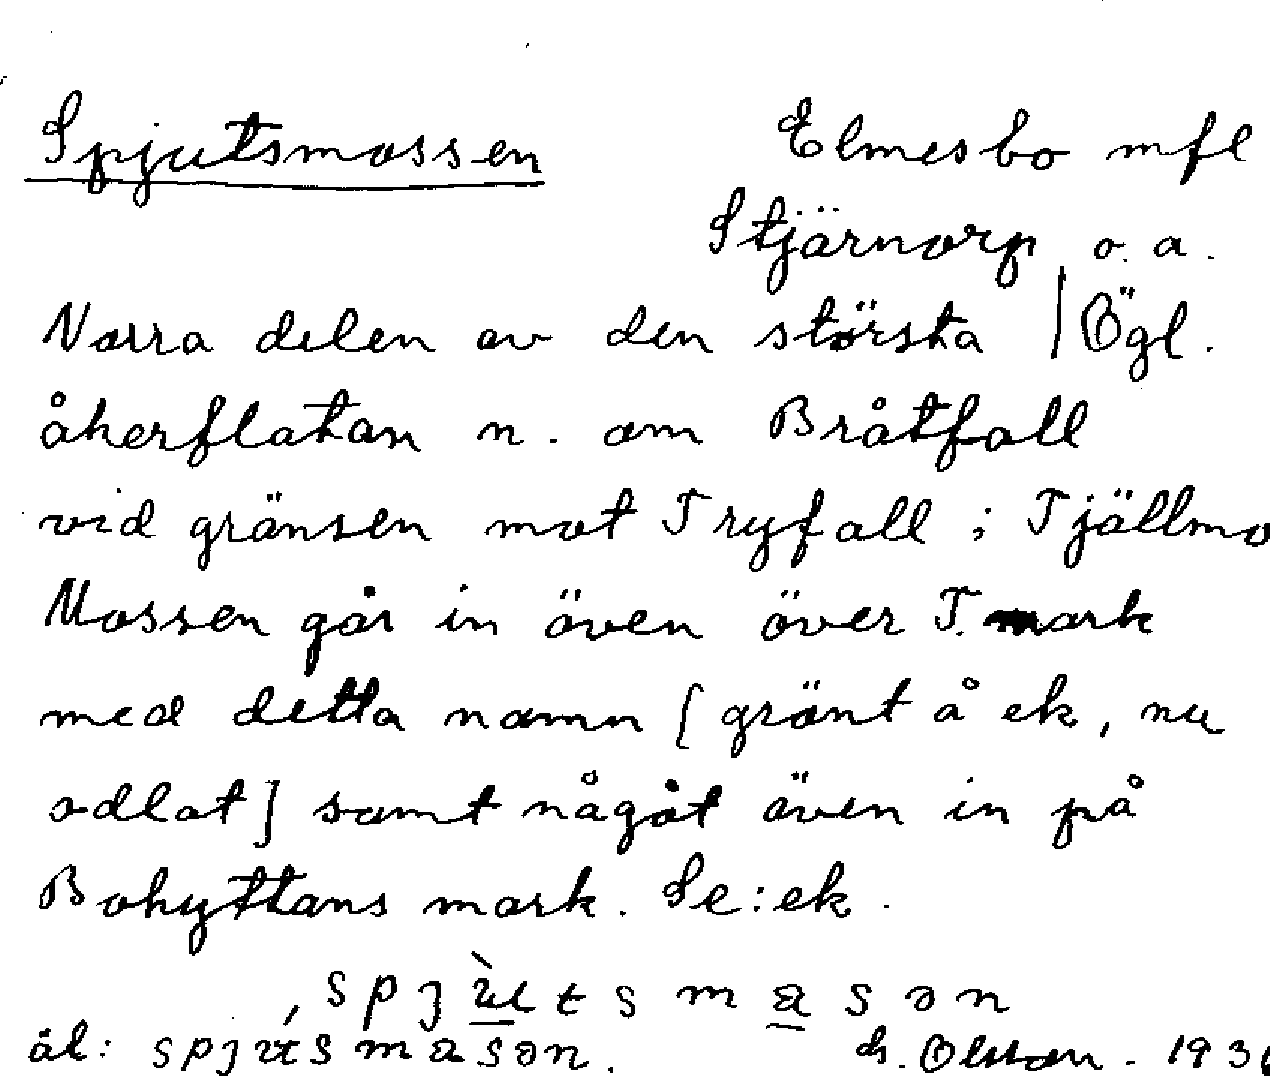 Spjutsmossen
Elmesbo mfl
Stjärnorp o. a.
Norra delen av den största | Ögl.
åkerflatan n. om Bråtfall
vid gränsen mot Tryfall i Tjällmo
Mossen går in även över T. mark
med detta namn [grönt å ek, nu
odlat] samt något även in på
Bohyttans mark. Se: ek.
äl:
Olsson - 193